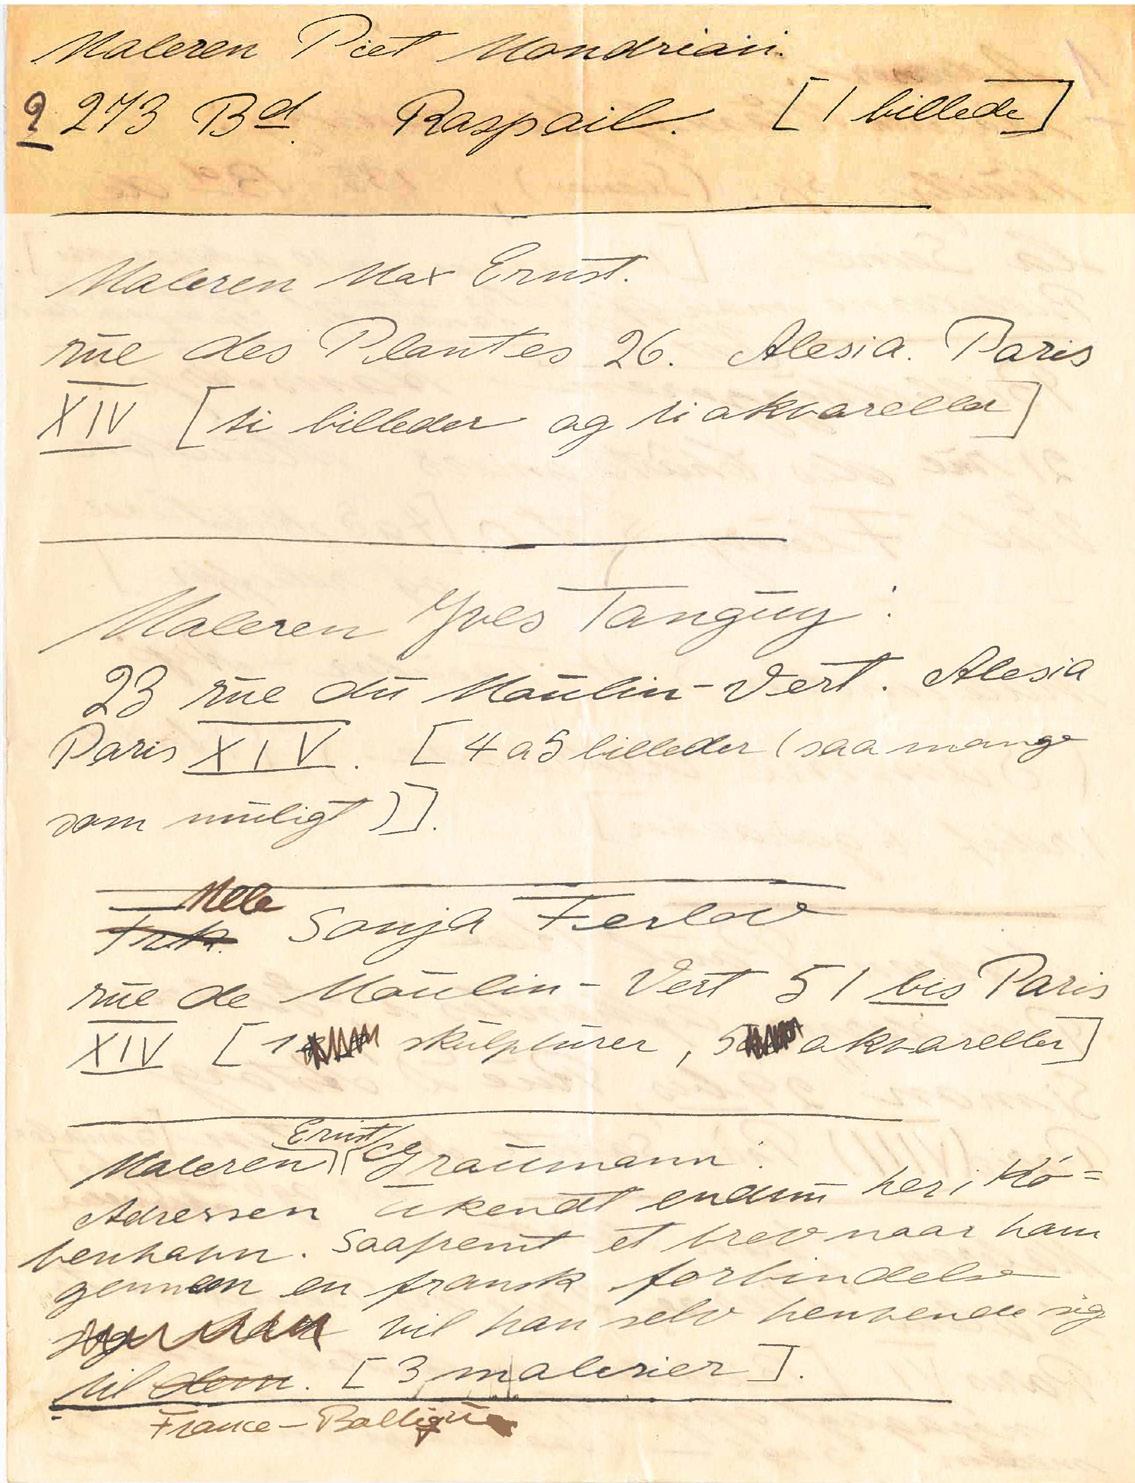 Maleren Piet Mondrian.
2 273 Bd. Raspail. [1 billede]
Maleren Max Ernst.
rue des Plantes 26. Alesia. Paris
XIV [ti billeder og ti akvareller]
Maleren Yves Tanguy:
23 rue du Moulin-Vert. Alesia
Paris XIV. [4 a 5 billeder (saa mange
som muligt)].
Melle
Frk. Sonja Ferlov
rue de Moulin-Vert 51 bis Paris
XIV [1 skulpturer, 5 akvareller]
Ernst
Maleren Graumann:
Adressen ukendt endnu her i Kø=
benhavn. Saafremt et brev naar ham
gennem en fransk forbindelse
vil han selv henvende sig
til dem. [3 malerier].
France-Baltique